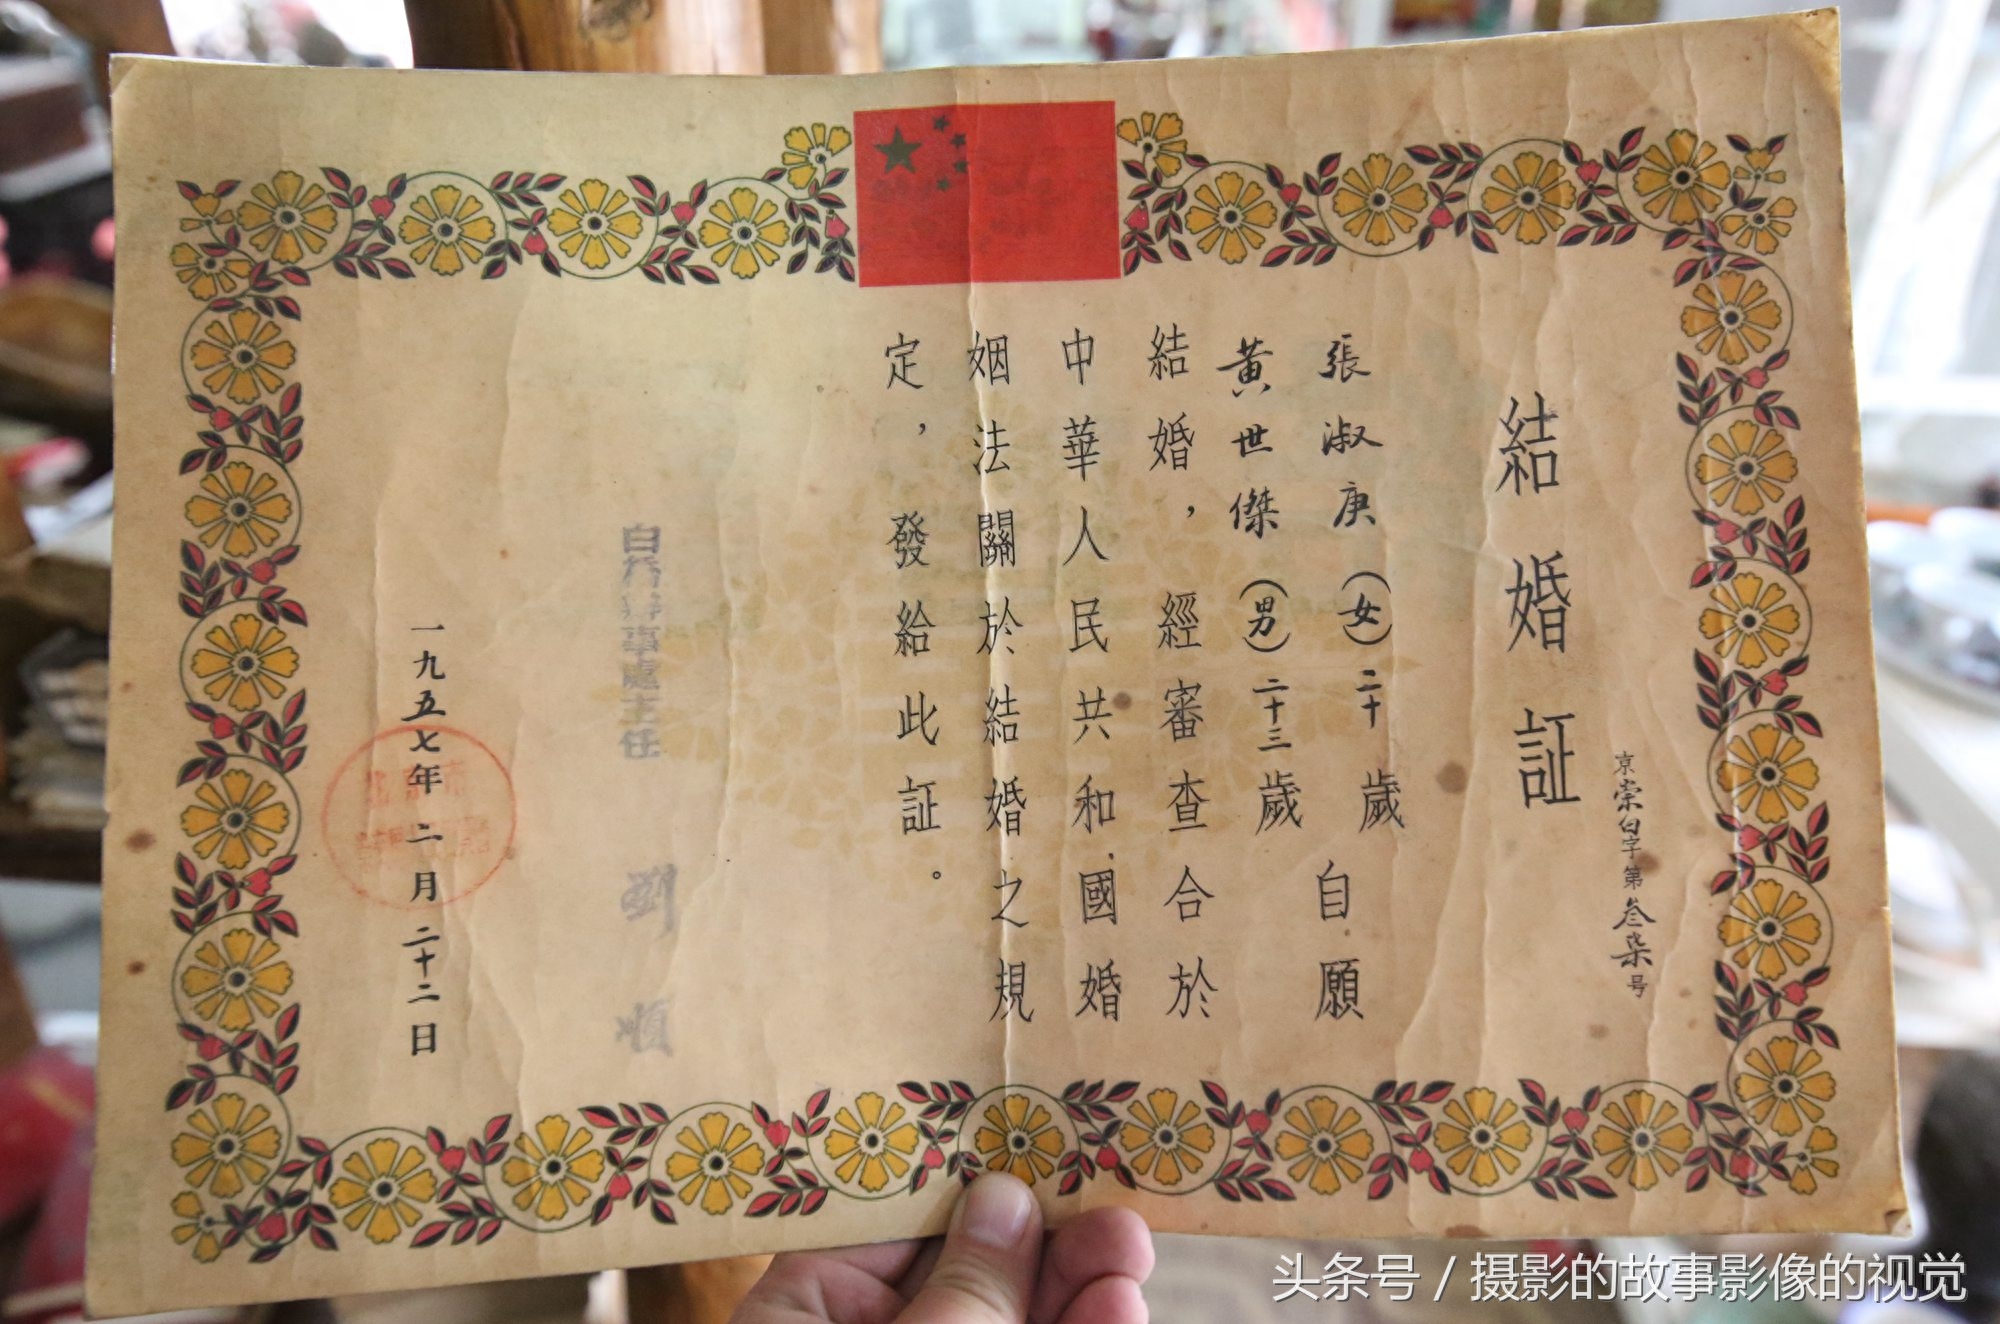 結婚証
京崇白字第叁柒号
張淑庚（女）二十歲
黃世傑（男）二十三歲
自願
結婚，經審查合於
中華人民共和國婚
姻法關於結婚之規
定，發給此証。
事處主任 劉順
一九五七年二月二十二日
头条号 / 摄影的故事影像的视觉